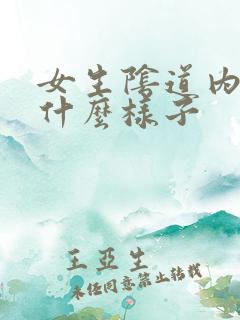 女生陰道内
什麼樣子
王亞生
未经同意禁止转载